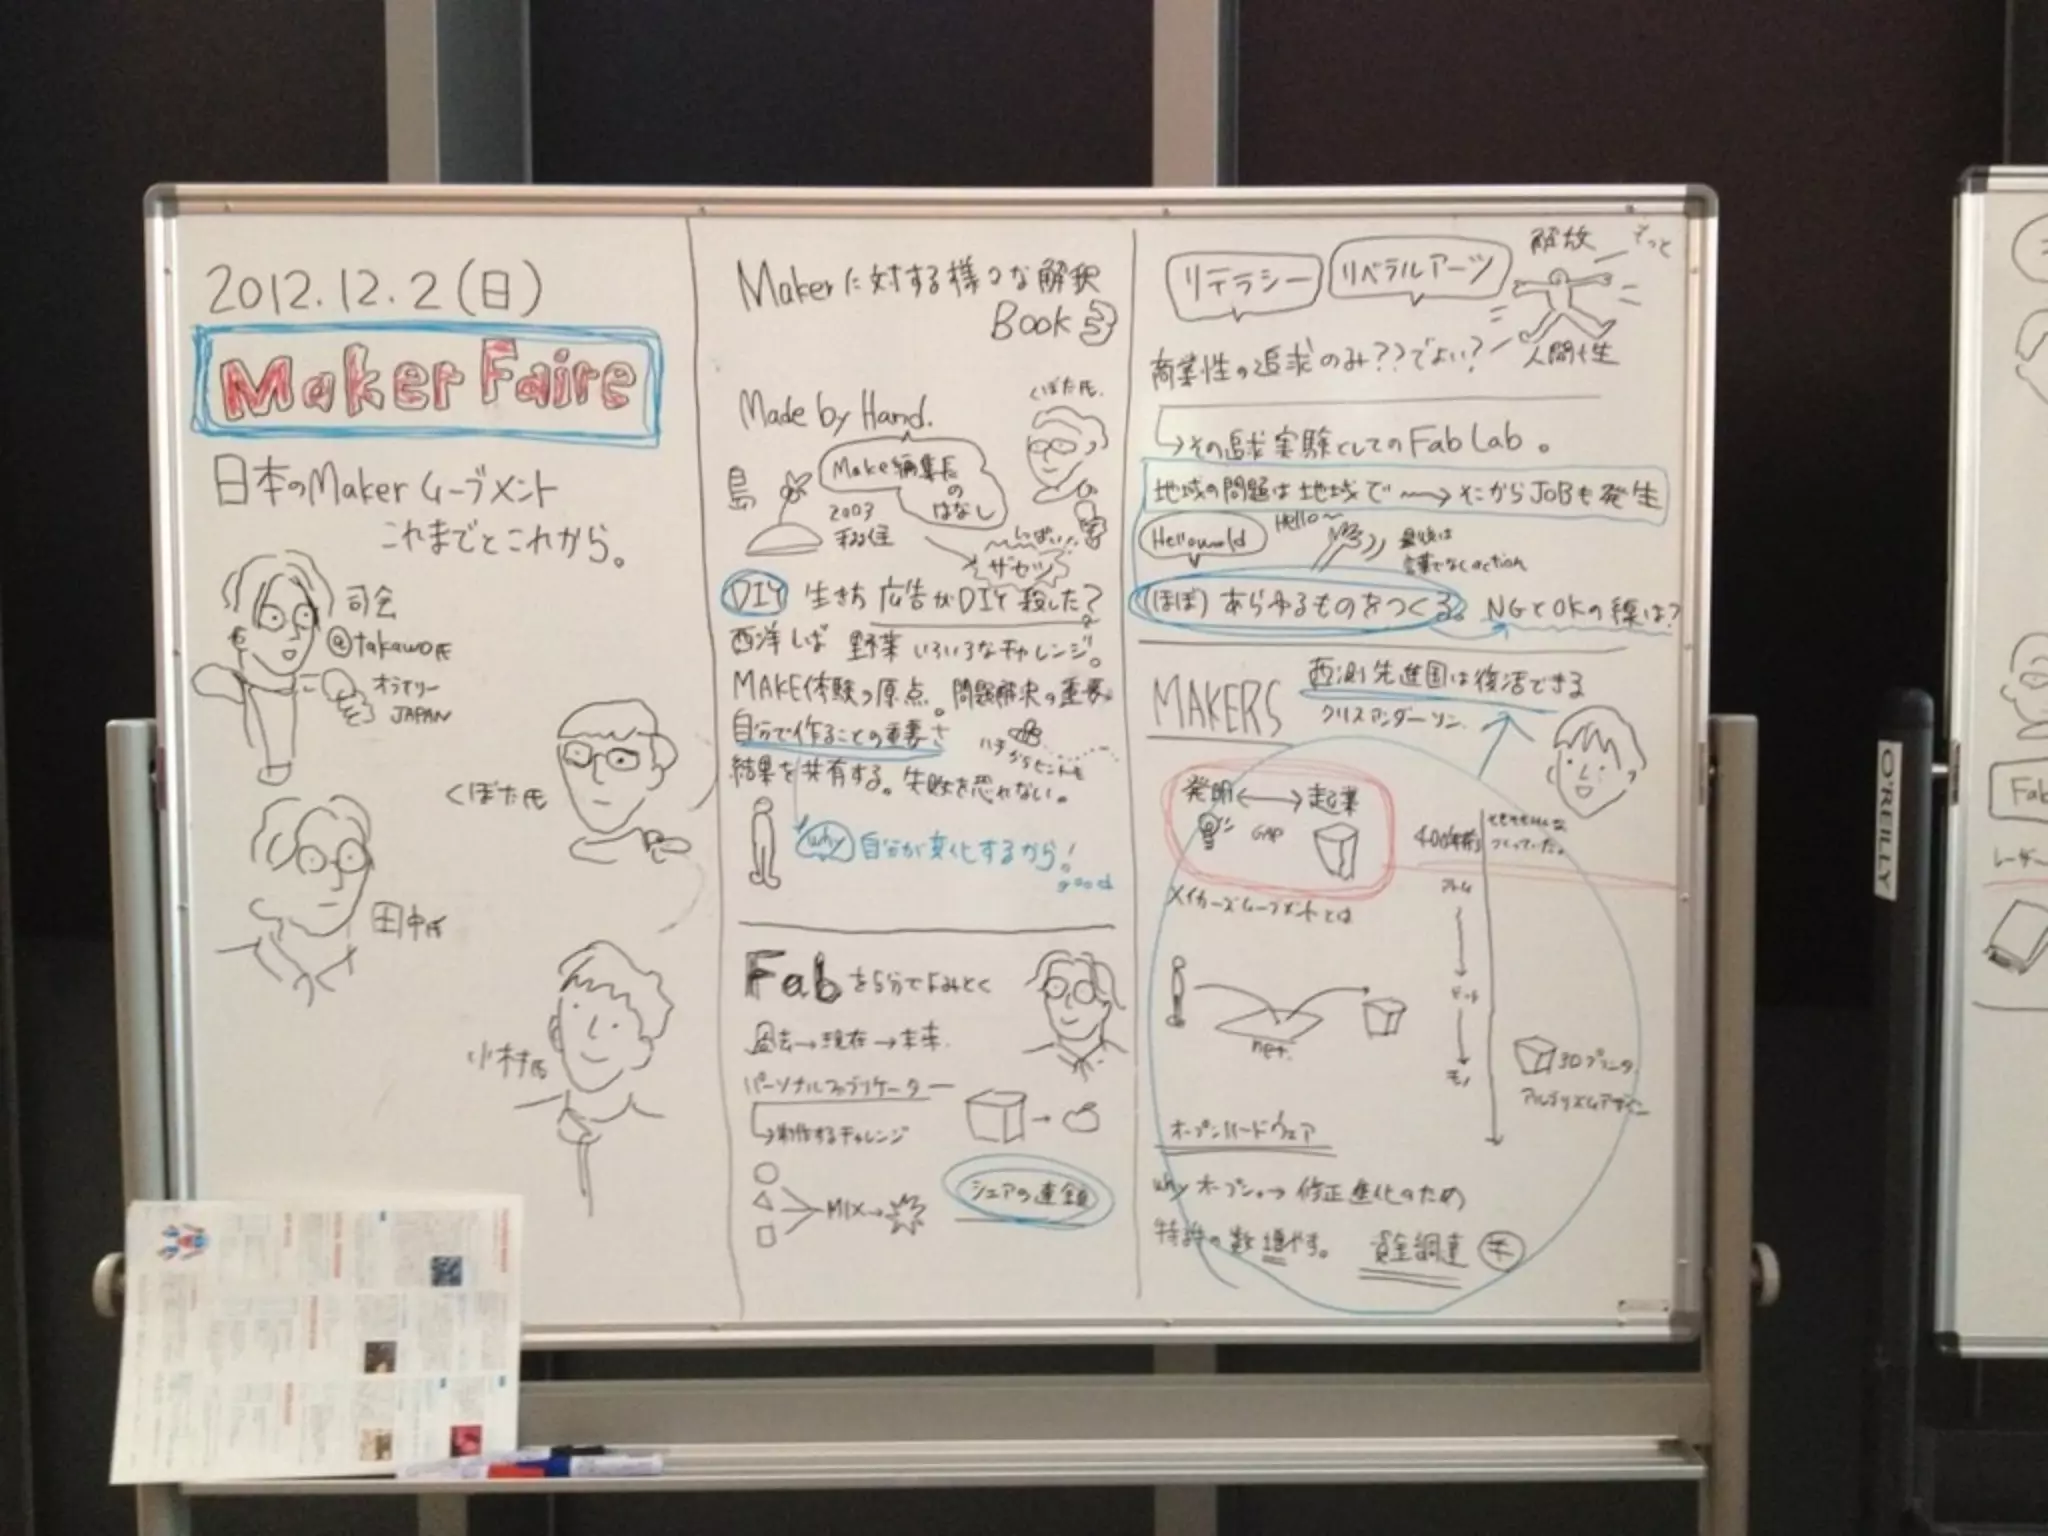 2012.12.2(日)
Maker Faire
日本のMaker ムーブメント
これまでとこれから。
司会
@takawo氏
オライリー
JAPAN
くぼた氏
田中氏
小村氏
Makerに対する様々な解釈
Book
Made by Hand.
くぼた氏.
Make編集長
の
はなし
島
2003
移住
しっぱい
ザセツ
DIY 生き方 広告がDIYを殺した?
西洋しば 野菜 いろいろなチャレンジ。
MAKE体験の原点。問題解決の重要
自分で作ることの重要さ
ハチからヒントを
結果を共有する。失敗を恐れない。
why 自分が変化するから!
good
Fabを5分でよみとく
過去→現在→未来.
パーソナルファブリケーター
→制作するチャレンジ
MIX→
シェアの連鎖
リテラシー リベラルアーツ
解放 そっと
人間性
商業性の追求のみ??でよい?
→その追求実験としてのFabLab。
地域の問題は地域で → そこからJOBも発生
Hellowold Hello〜
最後は
言葉でなくaction
(ほぼ)あらゆるものをつくる。 NGとOKの線は?
MAKERS 西側先進国は復活できる
クリスアンダーソン.
発明 ↔ 起業
GAP
400年前
つくっていた。
アトム
メイカーズムーブメントとは
net.
ビット
モノ
3Dプリンタ
アルゴリズムデザイン
オープンハードウェア
why オープン。→ 修正進化のため
特許の数増やす。 資金調達
O'REILLY
Fab
レーザー